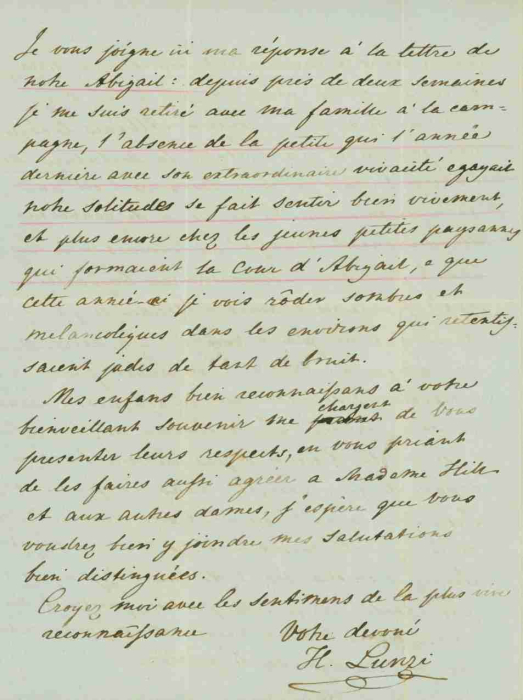 Je vous joigne ici ma réponse à la lettre de
notre Abigail: depuis près de deux semaines
je me suis retiré avec ma famille à la cam-
pagne, l'absence de la petite qui l'année
dernière avec son extraordinaire vivacité egayait
notre solitudes se fait sentir bien vivement,
et plus encore chez les jeunes petites paysannes
qui formaient la Cour d'Abigail, e que
cette année-ci je vois rôder sombres et
melancoliques dans les environs qui retentis-
saient jades de tant de bruit.
Mes enfans bien reconnaissans à votre
bienveillant souvenir me chargent de vous
presenter leurs respects, en vous priant
de les faires aussi agréer a Madame Hill
et aux autres dames, j'espère que vous
voudrez bien y joindre mes salutations
bien distinguées.
Croyez moi avec les sentimens de la plus vive
reconnaissance Votre devoué
H. Lunzi